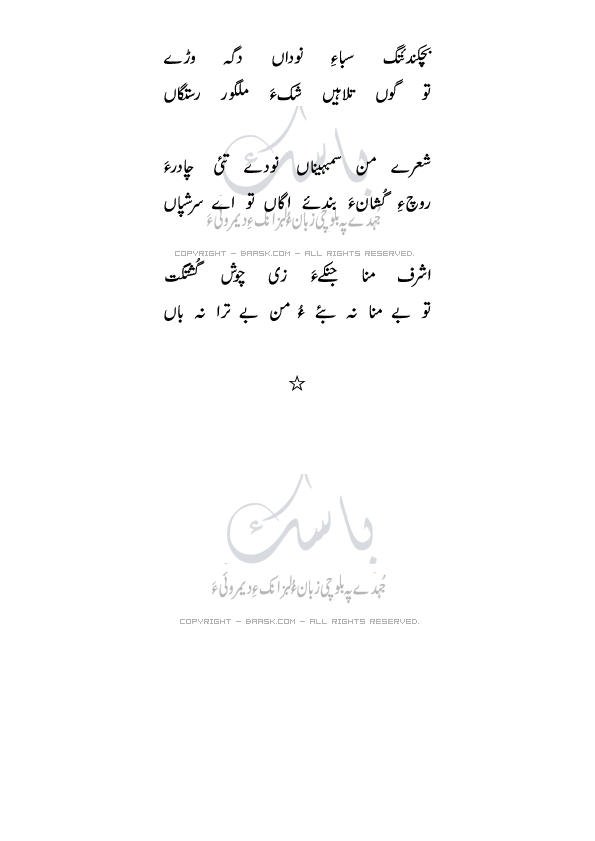 بچکندئگ سباءِ نوداں دگہ وڑے
تو گوں تلاہیں شکءَ ملگور رستگاں
شعرے من سمبہیناں نودے تئی چادرءَ
روچءِ گُشانءَ بندئے اگاں تو اے سرشپاں
جُہدے پہ بلوچی زبان ءُ لبزانک ءِ دیمروئی ءَ
COPYRIGHT - BAASK.COM - ALL RIGHTS RESERVED.
اشرف منا جنکےءَ زی چوش گُشتگت
تو بے منا نہ بئے ءُ من بے ترا نہ باں
☆
باسک
جُہدے پہ بلوچی زبان ءُ لبزانک ءِ دیمروئی ءَ
COPYRIGHT - BAASK.COM - ALL RIGHTS RESERVED.